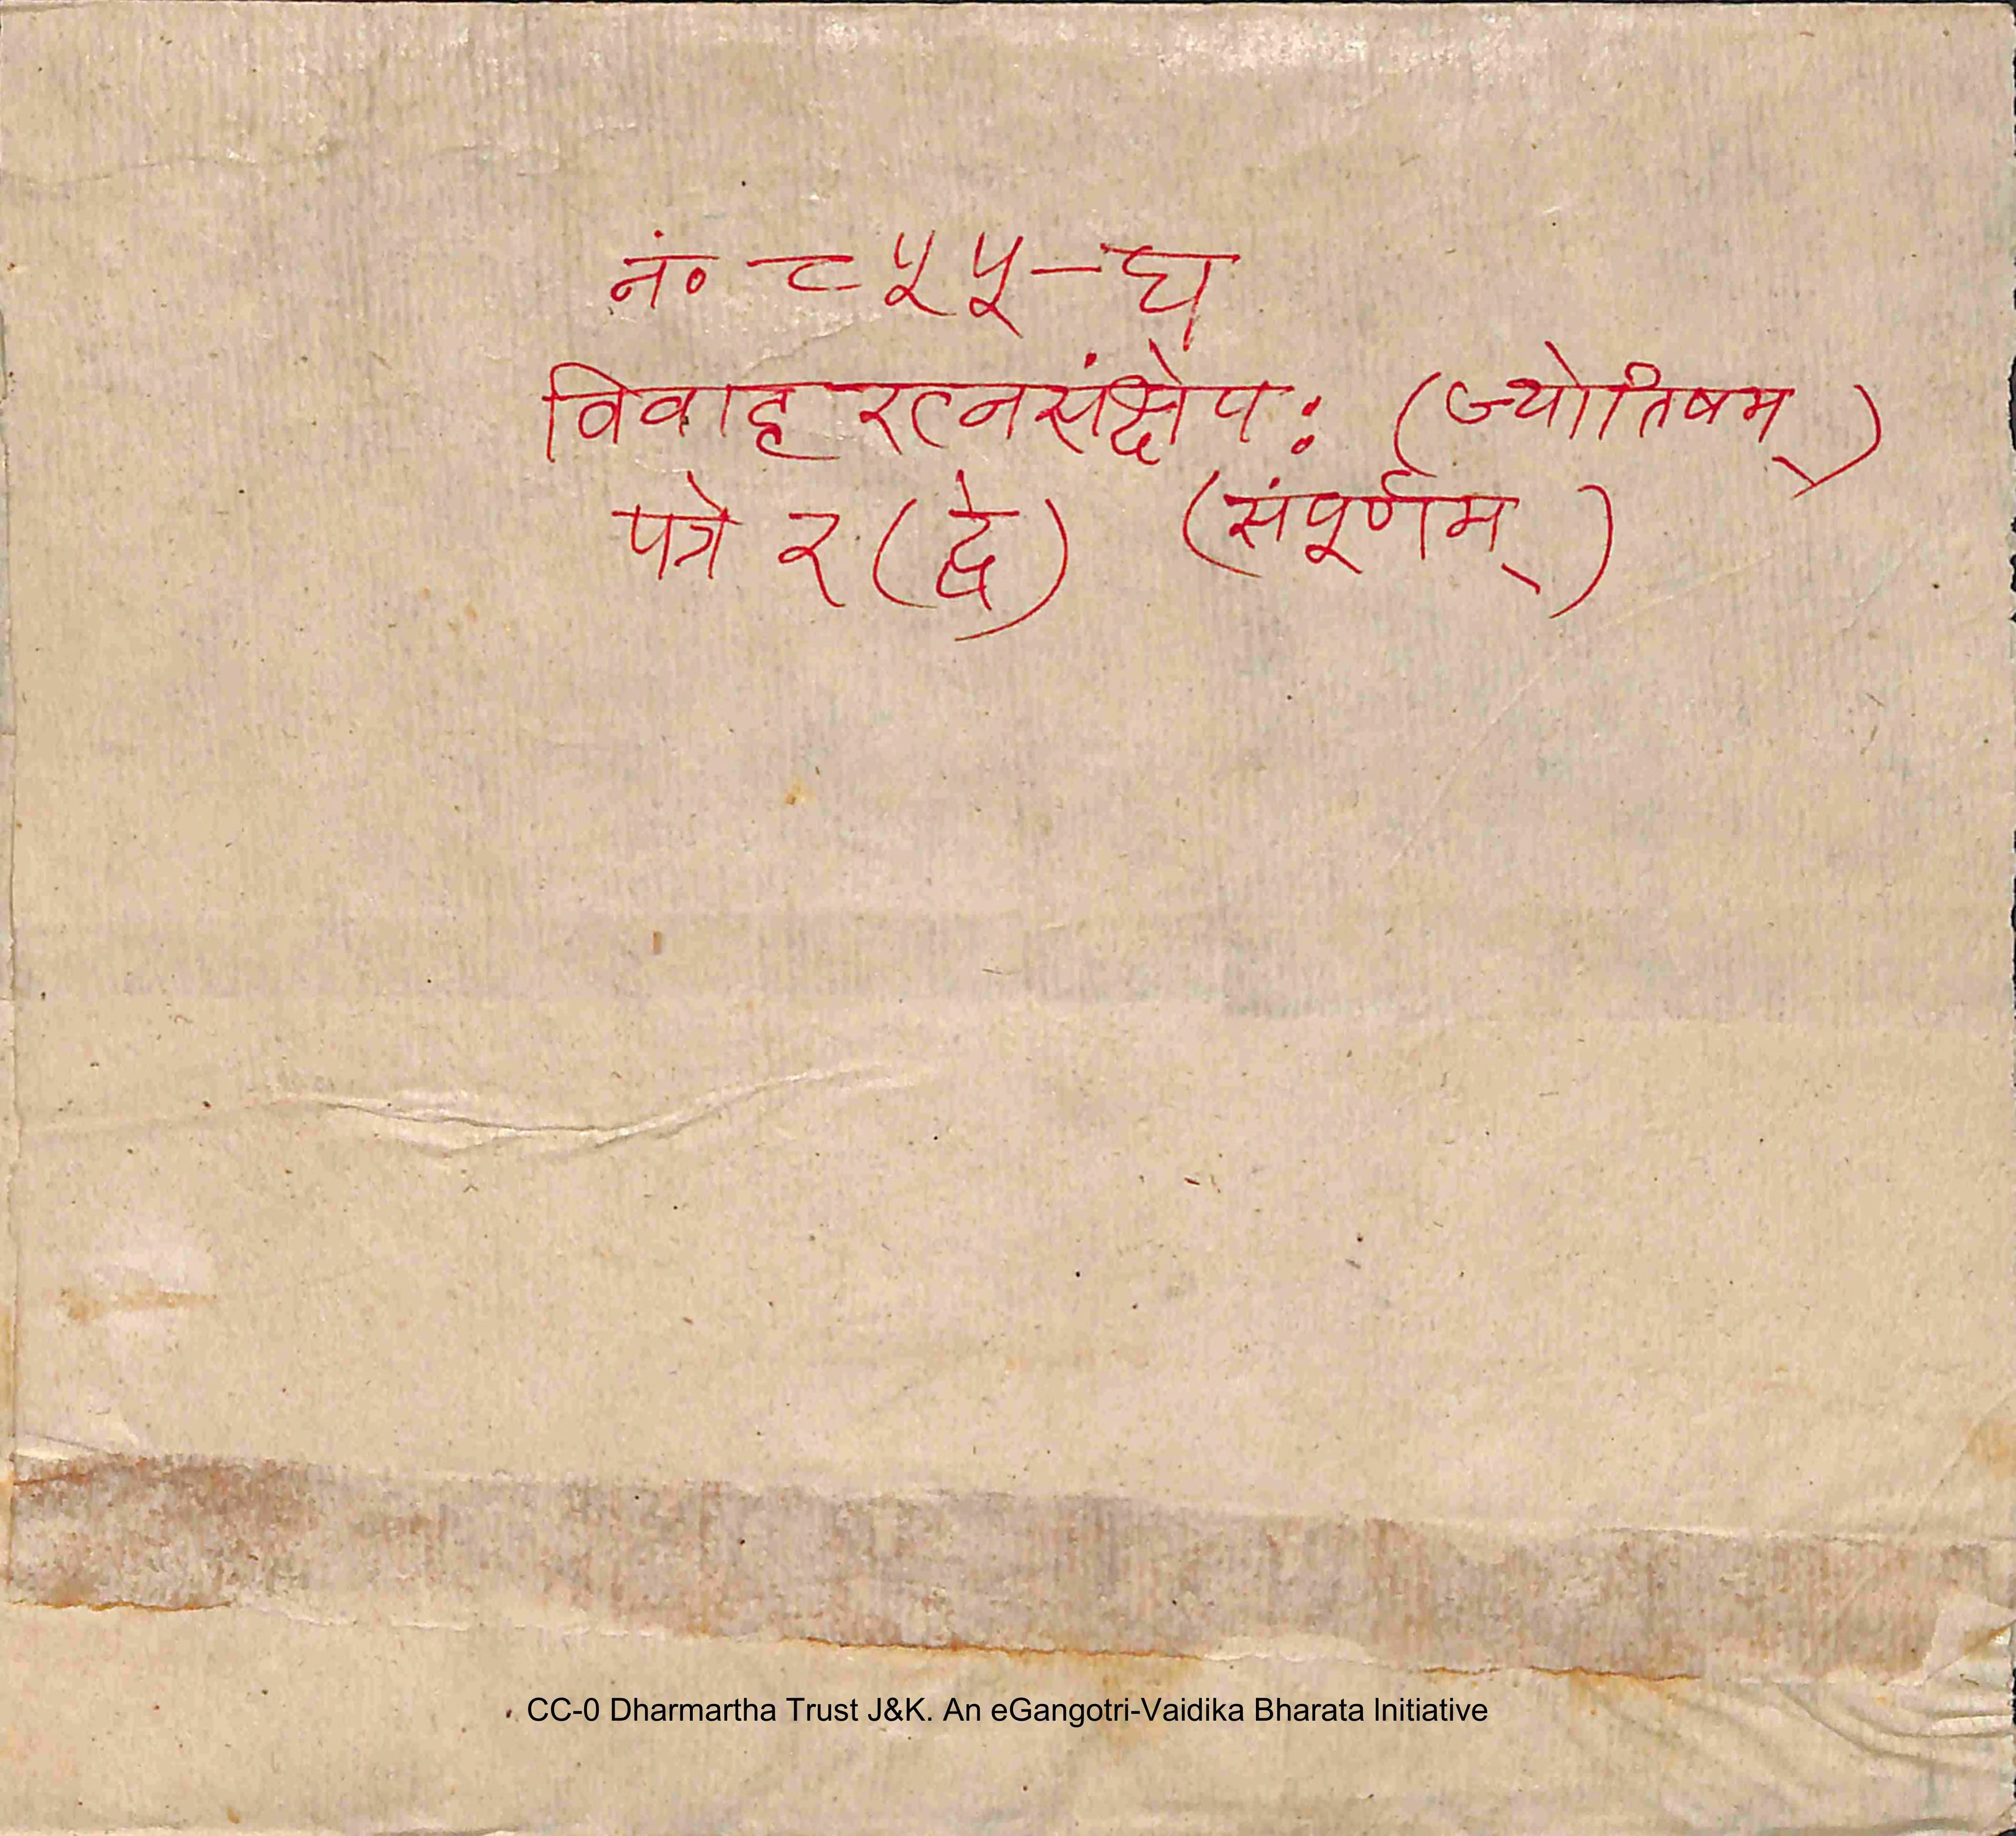 नं० ८५५-घ
विवाहरत्नसंक्षेपः (ज्योतिषम्)
पत्रे २ (द्वे) (संपूर्णम्)
CC-0 Dharmartha Trust J&K. An eGangotri-Vaidika Bharata Initiative